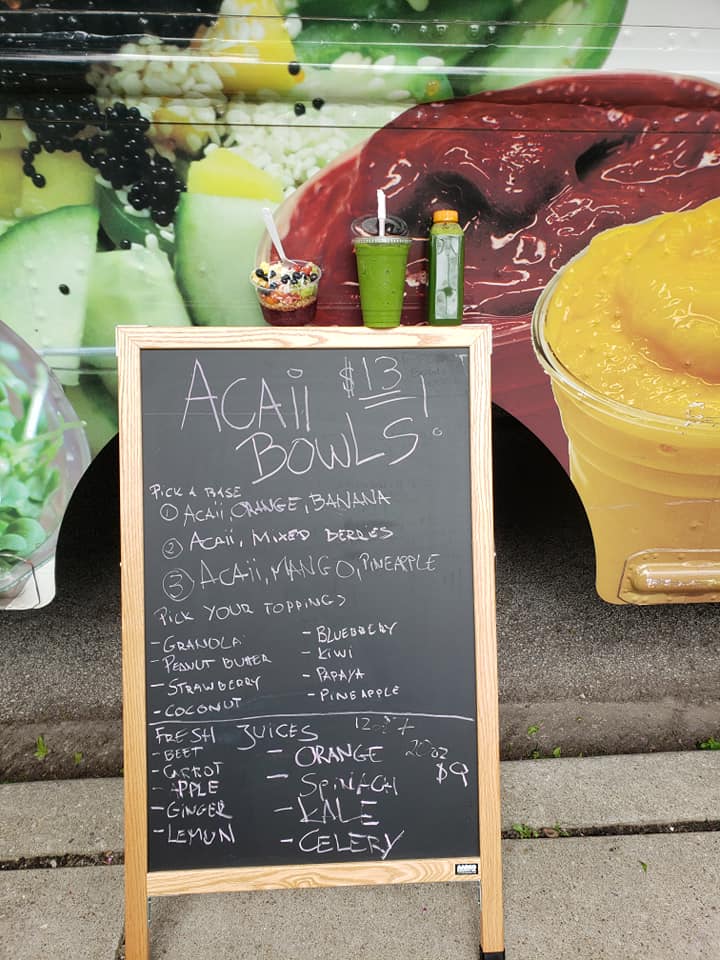 ACAii $13 !
BOWLS
PICK A BASE
① ACAii, ORANGE, BANANA
② ACAii, MIXED BERRIES
③ ACAii, MANGO, PINEAPPLE
PICK YOUR TOPPINGS
- GRANOLA
- PEANUT BUTTER
- STRAWBERRY
- COCONUT
- BLUEBERRY
- KIWI
- PAPAYA
- PINEAPPLE
FRESH JUICES
20oz
$9
- BEET
- CARROT
- APPLE
- GINGER
- LEMON
- ORANGE
- SPINACH
- KALE
- CELERY